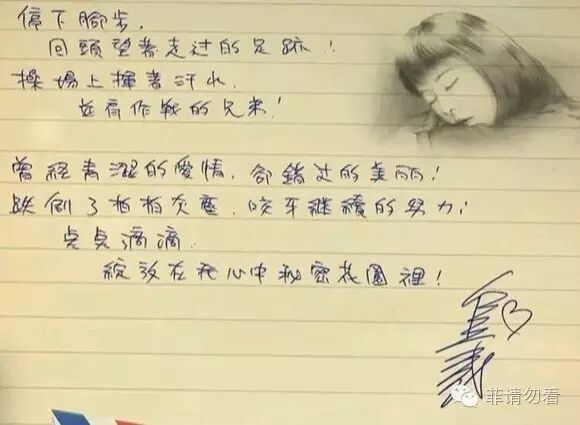 停下腳步,
回頭望著走过的足跡!
操場上揮著汗水,
並肩作戰的兄弟!
曾經青澀的愛情,卻錯过的美丽!
跌倒了拍拍灰塵,咬牙継續的努力!
点点滴滴,
綻放在我心中秘密花園裡!
菲请勿看